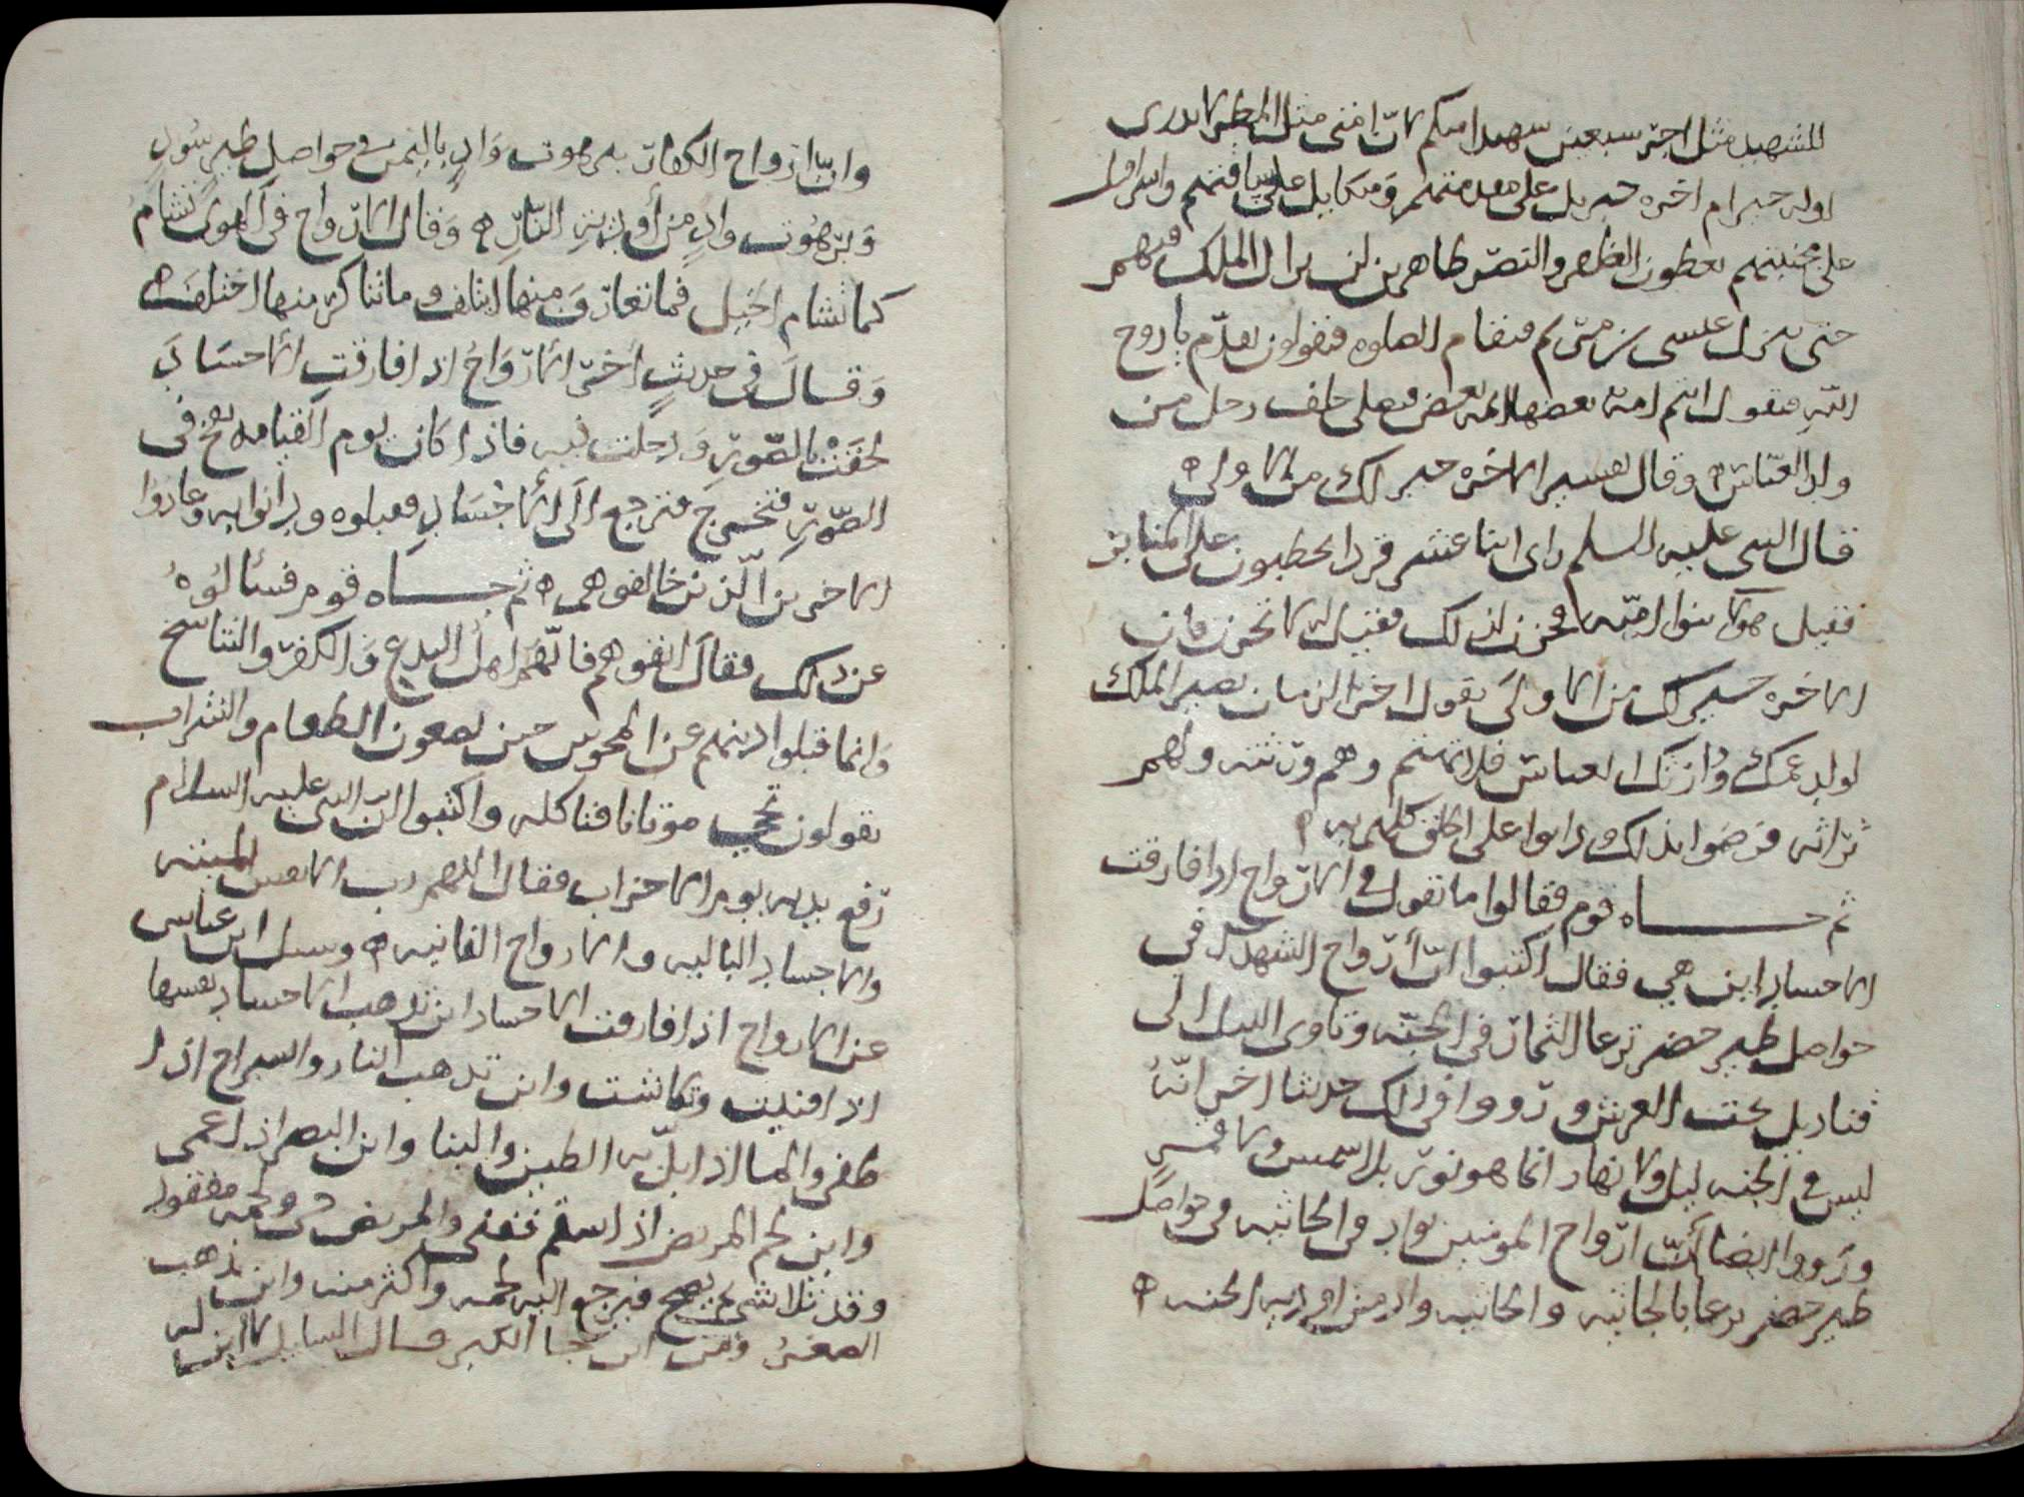 للشهيد مثل اجر سبعين شهيدا منكم لان امتي مثل المطر لا يدرى
اوله خير ام اخره جبريل على مقدمتهم وميكايل على ساقتهم واسرافيل
على مجنبتهم يعطون الظفر والنصر ظاهرين لن يزال الملك فيهم
حتى ينزل عيسى بن مريم فتقام الصلوه فيقولون تقدم يا روح
الله فيقول انتم امة بعضها لبعض فيصلي خلف رجل من
ولد العباس وقال تفسير الاخره خير لك من الاولى
قال النبي عليه السلم راى اثنا عشر قردا يخطبون على المنابر
فقيل هولا بنوا امية فحزن لذلك فقيل له لا تحزن فان
الاخره خير لك من الاولى يقول اخر الزمان يصير الملك
لولد عمك ووارثك العباس فلا تهتم وهم ورثته ولهم
تراثه فرضوا بذلك ودانوا على الخلق كلهم به
ثم جـــاه قوم فقالوا ما تقول في الارواح اذا فارقت
الاجساد اين هي فقال اكتبوا ان ارواح الشهدا في
حواصل طير خضر ترعا الثمار في الجنه وتاوى الليل الى
قناديل تحت العرش ورووا في ذلك حديثا اخر انه
ليس في الجنه ليل ولا نهار انما هو نور بلا شمس ولا قمر
ورووا ايضا ان ارواح المومنين بواد في الجاثيه في حواصل
طير خضر ترعا بالجاثيه والجاثيه واد من اودية الجنه
وان ارواح الكفار ببرهوت واد باليمن في حواصل طير سود
وبرهوت واد من أودية النار وقال الارواح في الهوى تشام
كما تشام الخيل فما تعارف منها ايتلف وما تناكر منها اختلف
وقال في حديث أخر الارواح اذا فارقت الاجساد
لحقت بالصور ودخلت فيه فاذا كان يوم القيامه نفخ في
الصور فتخرج فترجع الى الاجساد فقبلوه ودانوا به وعادوا
الاخرين الذين خالفوهم ثم جـــاه قوم فسالوه
عن ذلك فقال انفوهم فانهم اهل البدع والكفر والتناسخ
وانما قبلوا دينهم عن المجوس حين يضعون الطعام والشراب
يقولون تجي موتانا فتاكله واكتبوا ان النبي عليه السلام
رفع يديه يوم الاحزاب فقال اللهم رب الانفس الميته
والاجساد الباليه والارواح الفانيه وسيل ابن عباس
عن الارواح اذا فارقت الاجساد اين تذهب الاجساد نفسها
اذا فنيت وتلاشت واين تذهب النار والسراج اذا
طفي والما اذا بل به الطين والبنا واين البصر اذا عمى
واين لحم المريض اذا سقم فنفى والمريض حي ولحمه مفقود
وقد تلاشى ثم يصح فيرجع اليه لحمه واكثر منه واين يذهب
الصغر ومن اين يجا الكبر قال السايل لا اين له